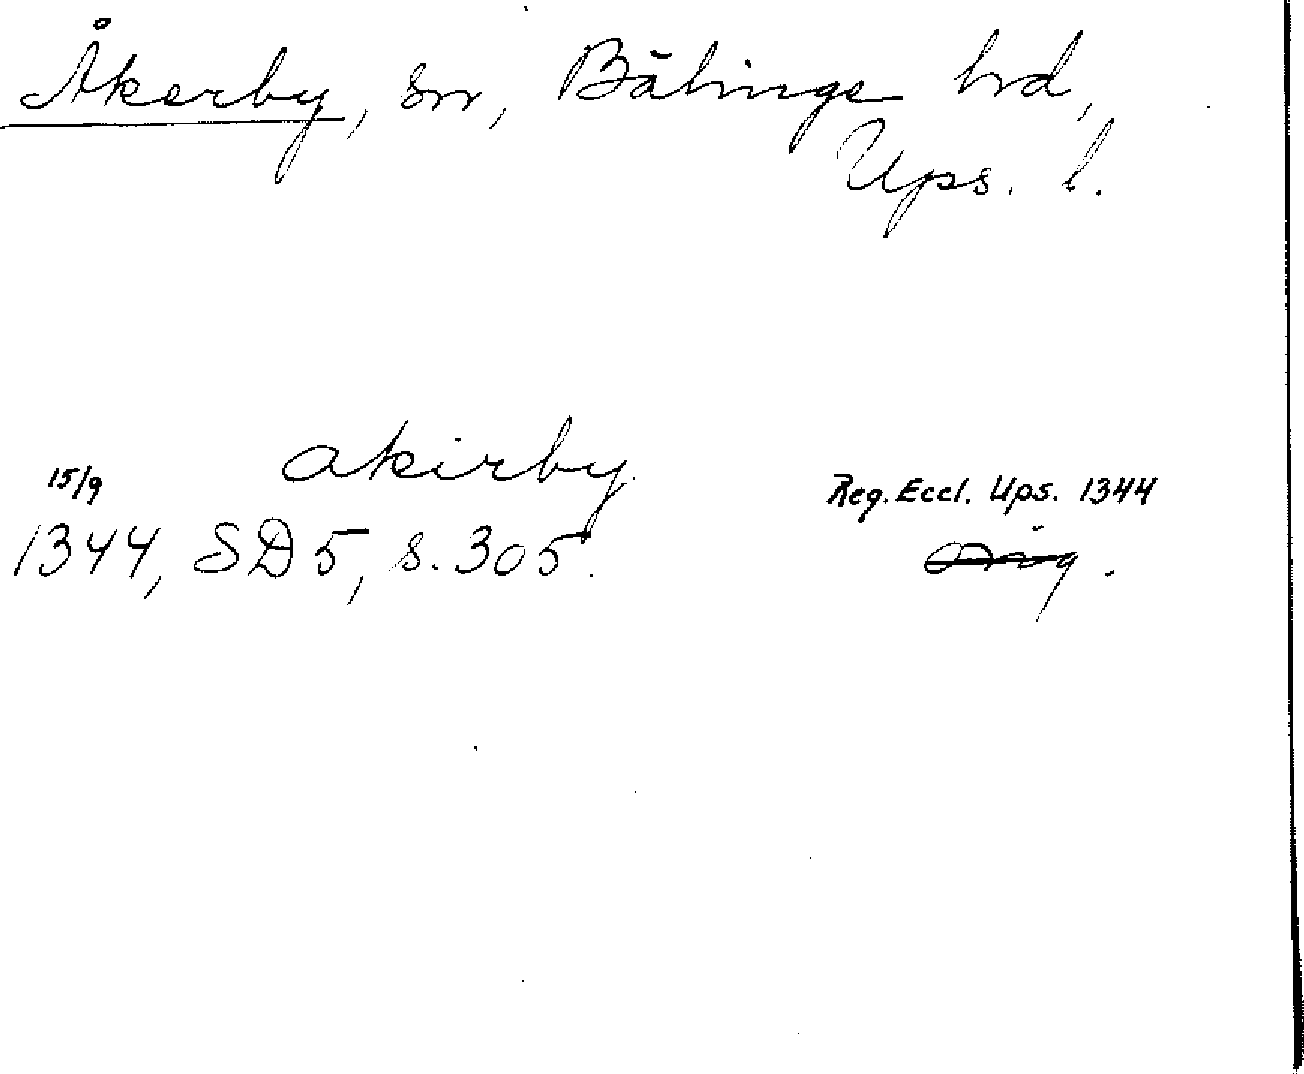 Åkerby, sn, Bälinge hd,
Ups. l.
akirby.
15/9
Reg. Eccl. Ups. 1344
1344, SD 5, s. 305.
orig.